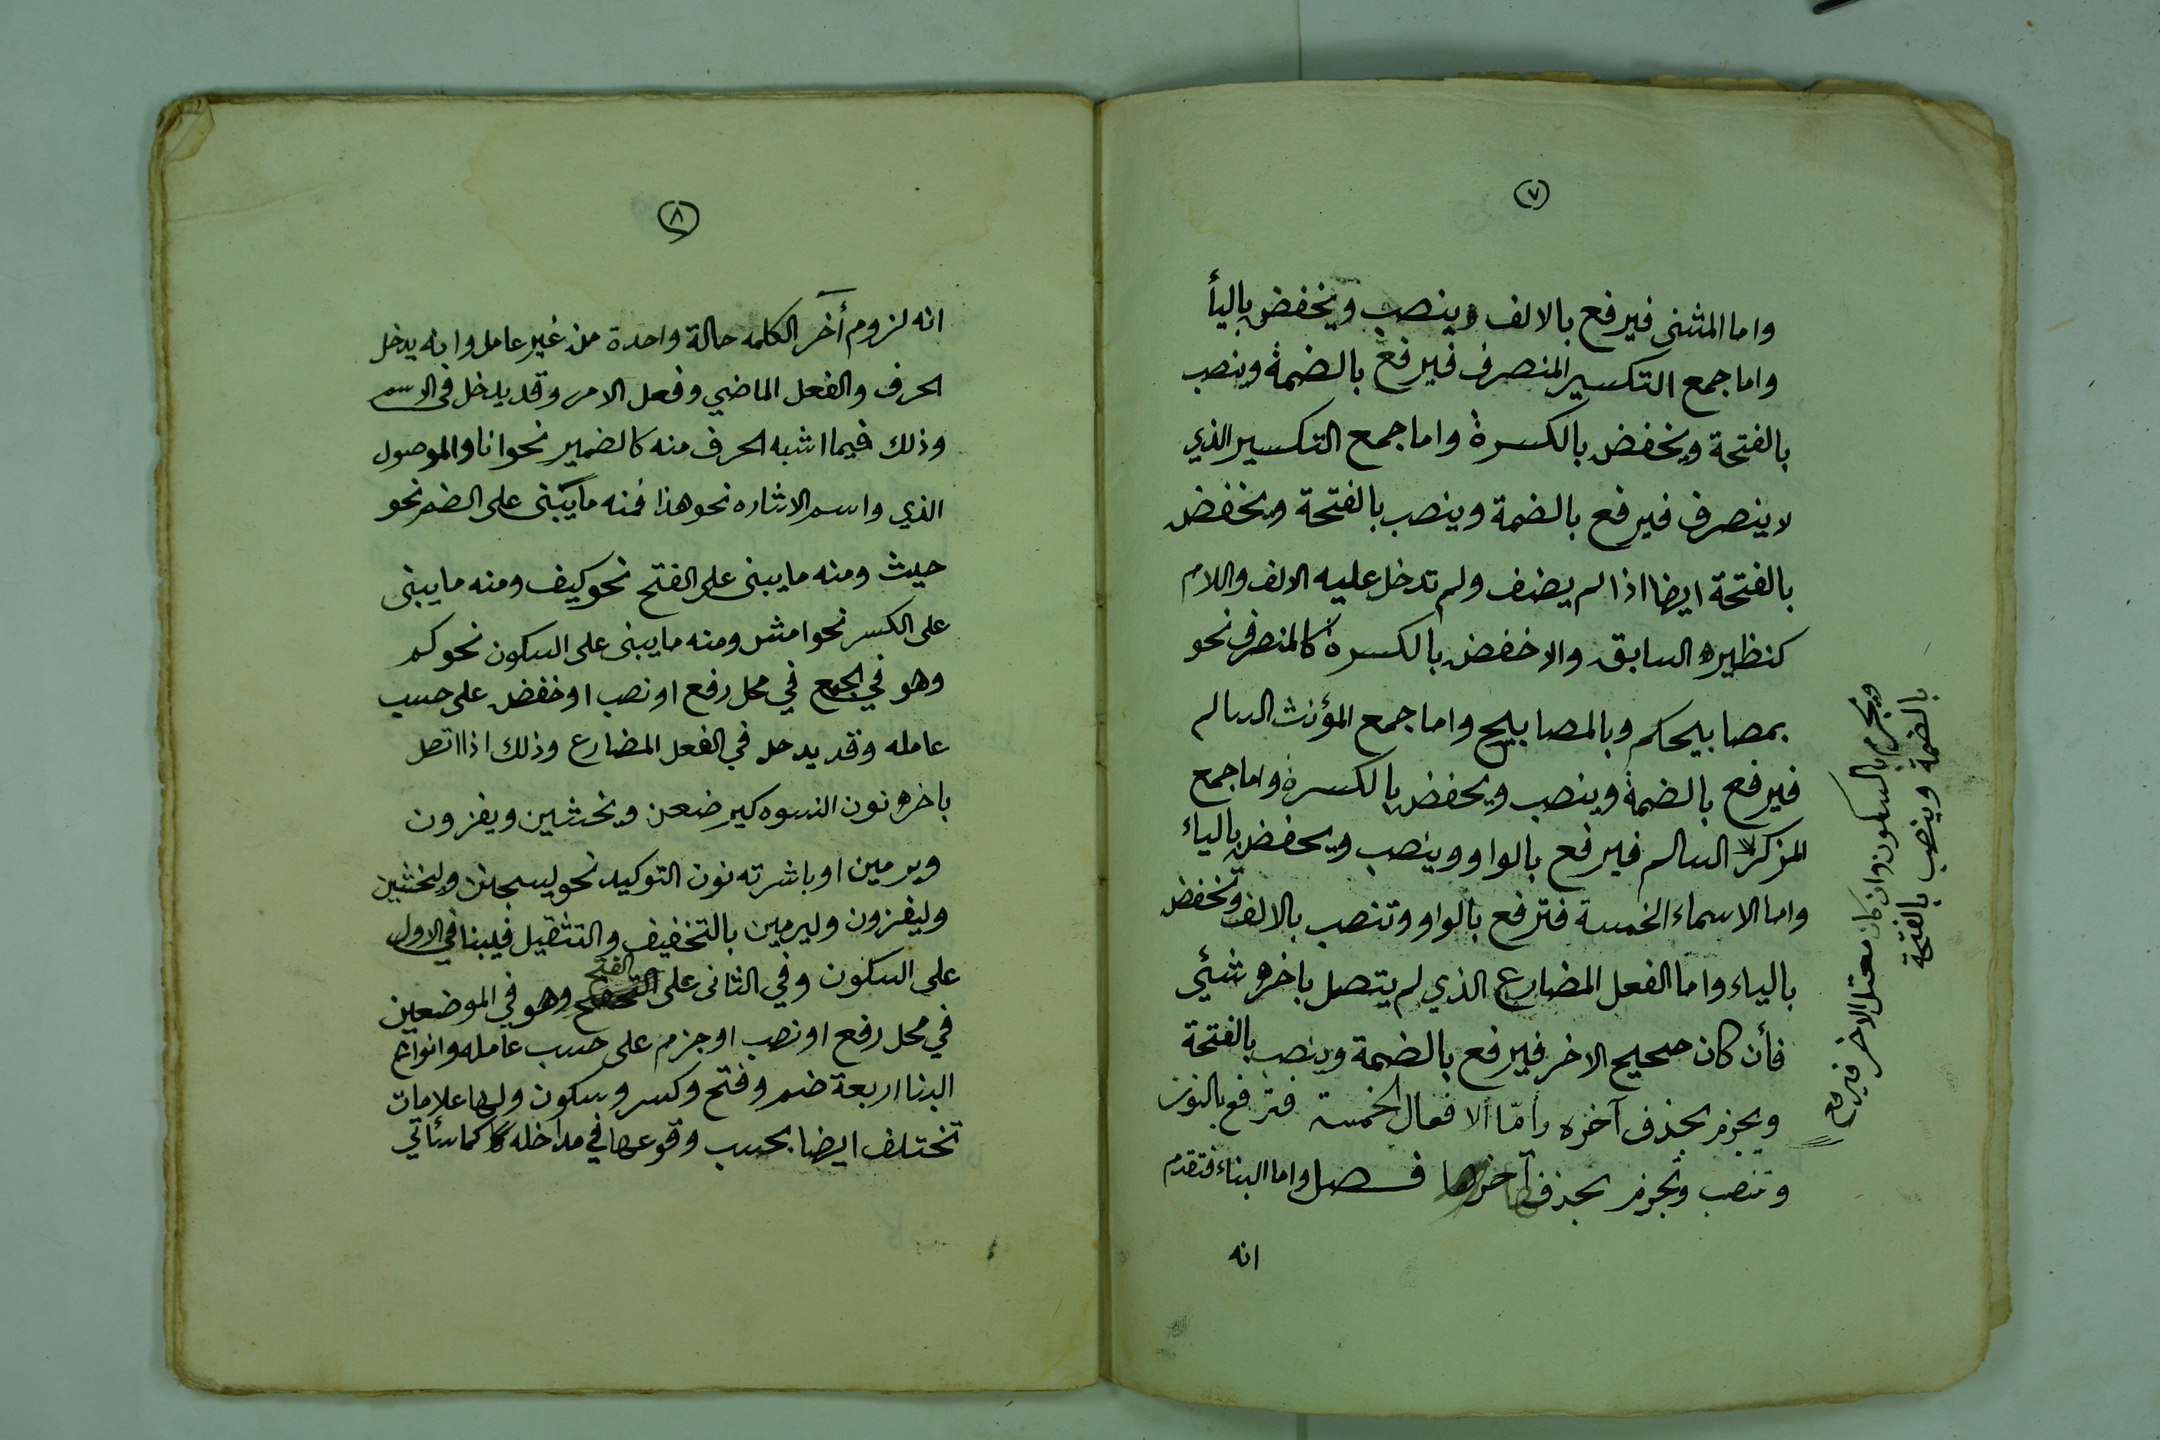 ٧
واما المثنى فيرفع بالالف وينصب ويخفض باليأ
واما جمع التكسير المنصرف فيرفع بالضمة وينصب
بالفتحة ويخفض بالكسرة واما جمع التكسير الذي
لا ينصرف فيرفع بالضمة وينصب بالفتحة ويخفض
بالفتحة ايضا اذا لم يضف ولم تدخل عليه الالف واللام
كنظيره السابق والاخفض بالكسرة كالمنصرف نحو
بمصابيحكم وبالمصابيح واما جمع المؤنث السالم
فيرفع بالضمة وينصب ويخفض بالكسرة واما جمع
المزكر السالم فيرفع بالواو وينصب ويخفض بالياء
واما الاسماء الخمسة فترفع بالواو وتنصب بالالف وتخفض
بالياء واما الفعل المضارع الذي لم يتصل باخره شيئ
فأن كان صحيح الاخر فيرفع بالضمة وينصب بالفتحة
ويجزم بحذف آخره وأمّا الافعال الخمسة فترفع بالنون
وتنصب وتجزم بحذفها فصل واما البناء فتقدم
انه
ويجزم بالسكون وان كان معتل الاخر فيرفع
بالضمة وينصب بالفتحة
٨
انه لزوم أخر الكلمه حالة واحدة من غير عامل وانه يدخل
الحرف والفعل الماضي وفعل الامر وقد يدخل في الاسم
وذلك فيما اشبه الحرف منه كالضمير نحو انا والموصول
الذي واسم الاشاره نحو هذا فمنه ما يبنى على الضم نحو
حيث ومنه ما يبنى على الفتح نحو كيف ومنه ما يبنى
على الكسر نحو امس ومنه ما يبنى على السكون نحو كم
وهو في الجمع في محل رفع او نصب او خفض على حسب
عامله وقد يدخل في الفعل المضارع وذلك اذا اتصل
باخره نون النسوه كيرضعن ويخشين ويغزون
ويرمين او باشرته نون التوكيد نحو ليسجنن وليخشين
وليغزون وليرمين بالتخفيف والتثقيل فيبنا في الاول
على السكون وفي الثانى على الفتح وهو في الموضعين
في محل رفع او نصب او جزم على حسب عامله وانواع
البنا اربعة ضم وفتح وكسر وسكون ولها علامات
تختلف ايضا بحسب وقوعها في مداخله كما سئاتي